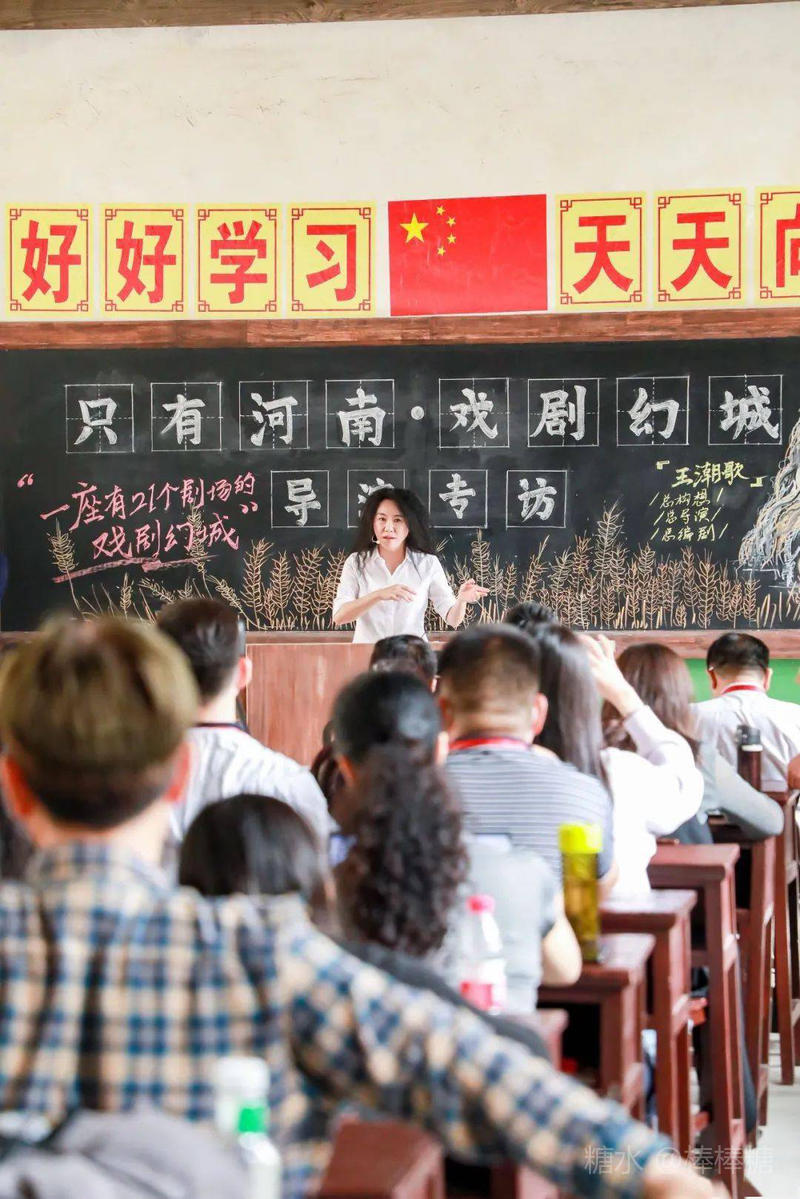 好好学习 天天向
只有河南·戏剧幻城
导演专访
“一座有21个剧场的
戏剧幻城”
『王潮歌』
/总构想/
/总导演/
/总编剧/
糖水 @棒棒糖